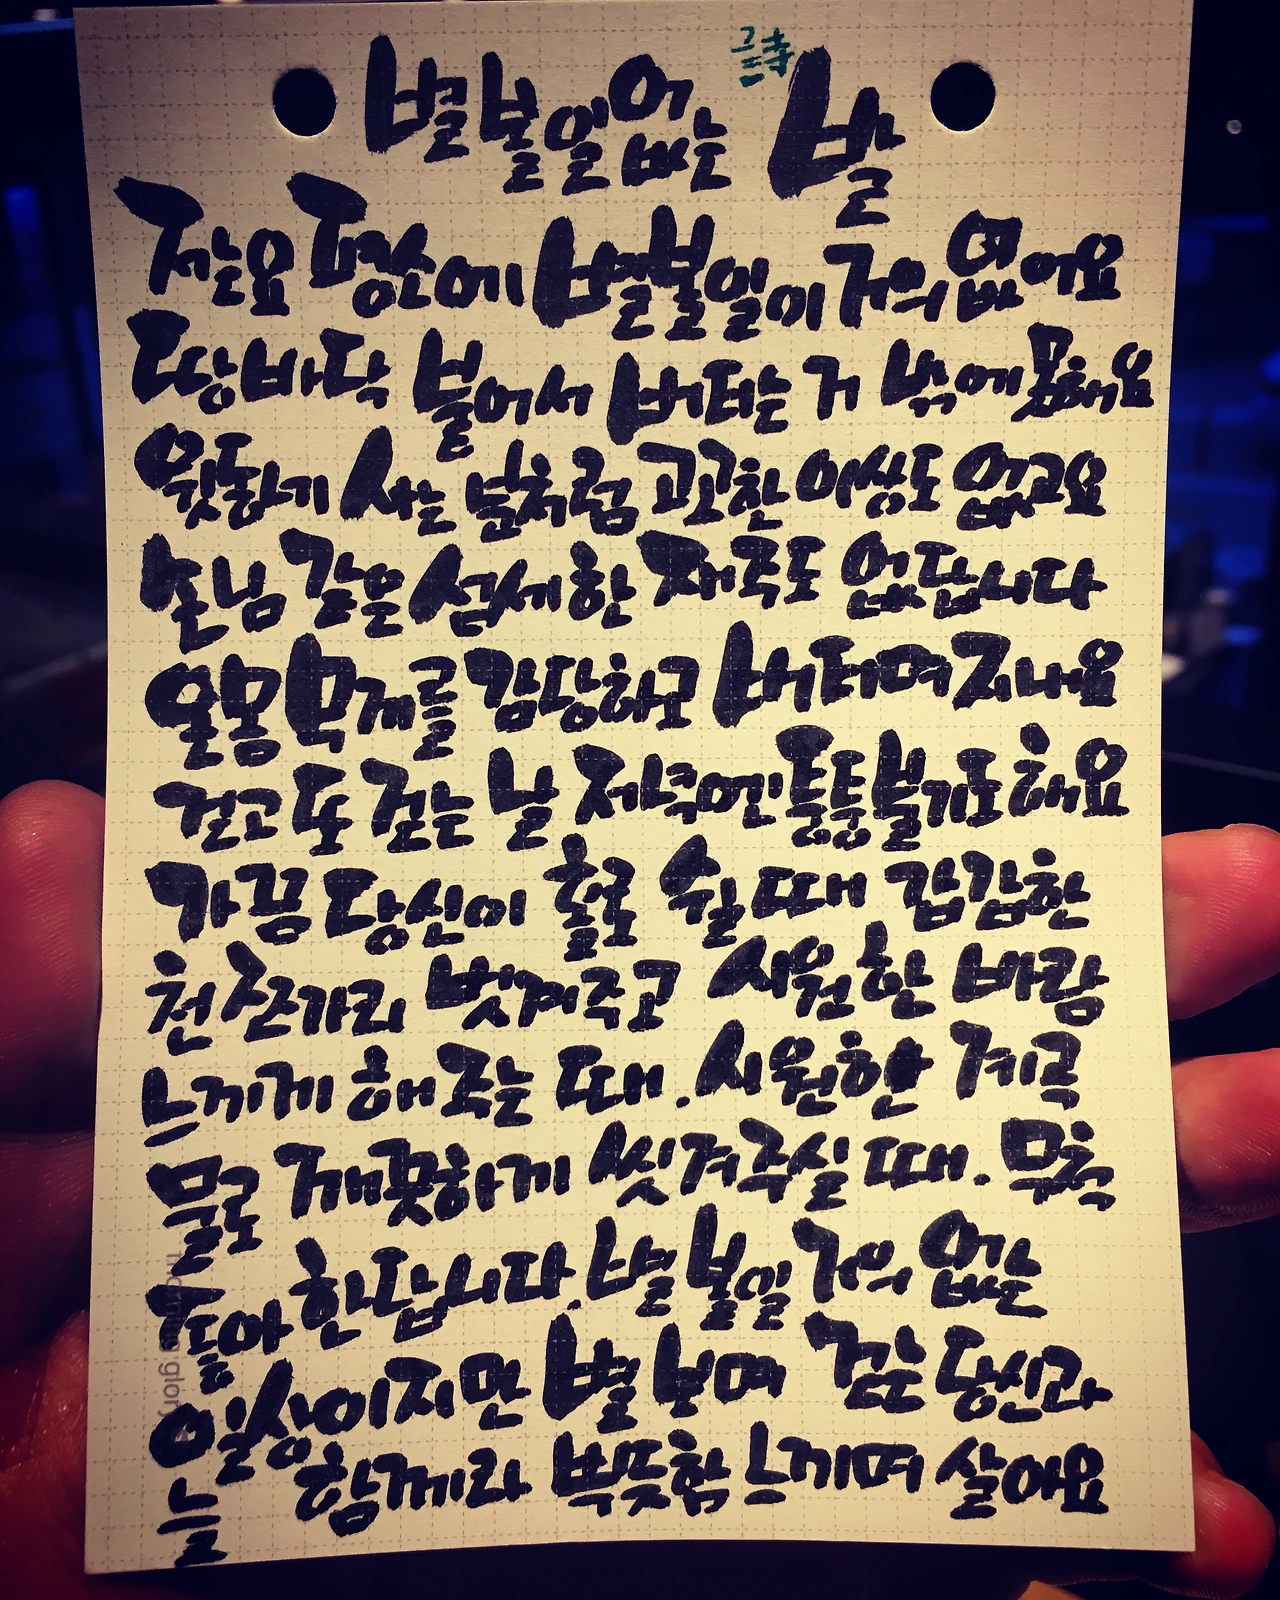 별 볼 일 없는 발
그 詩
저는요 평소에 별 볼 일이 거의 없어요
땅바닥 붙어서 버티는 거 밖에 못해요
우뚝하게 사는 분처럼 고고한 이상도 없고요
손님 같은 섬세한 재주도 없답니다
온몸 무게를 감당하고 버티며 지내요
걷고 또 걷는 날 저녁엔 퉁퉁 붇기도 해요
가끔 당신이 홀로 쉴 때 갑갑한
천 쪼가리 벗겨주고 시원한 바람
느끼게 해 주는 때. 시원한 계곡
물로 깨끗하게 씻겨주실 때. 무척
좋아한답니다. 별 볼일 거의 없는
일상이지만 별 보며 걷는 당신과
늘 함께라 뿌듯함 느끼며 살아요